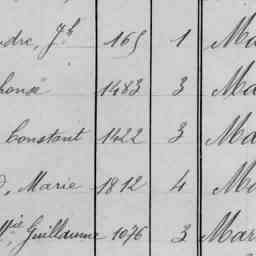 ndre, Jh 165 1 Ma
honse 1483 3 Ma
Constant 1422 3 Ma
, Marie 1812 4 Ma
Guillaume 1076 3 Mar